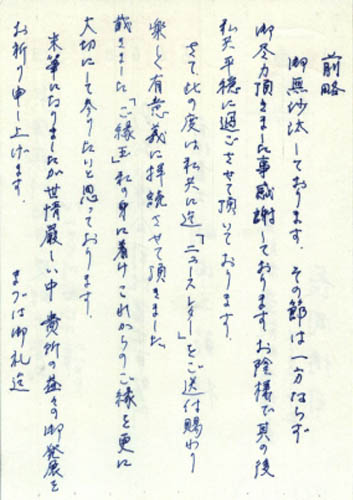 前略
御無沙汰しております。その節は一方ならず
御尽力頂きました事感謝しております。お陰様で其の後
私共平穏に過ごさせて頂いております。
さて、此の度は私共に迄「ニュースレター」をご送付賜わり
楽しく有意義に拝読させて頂きました。
戴きました「ご縁玉」私の身に着けこれからのご縁を更に
大切にして参りたいと思っております。
末筆になりましたが世情厳しい中 貴所の益々の御発展を
お祈り申し上げます。
まづは御礼迄